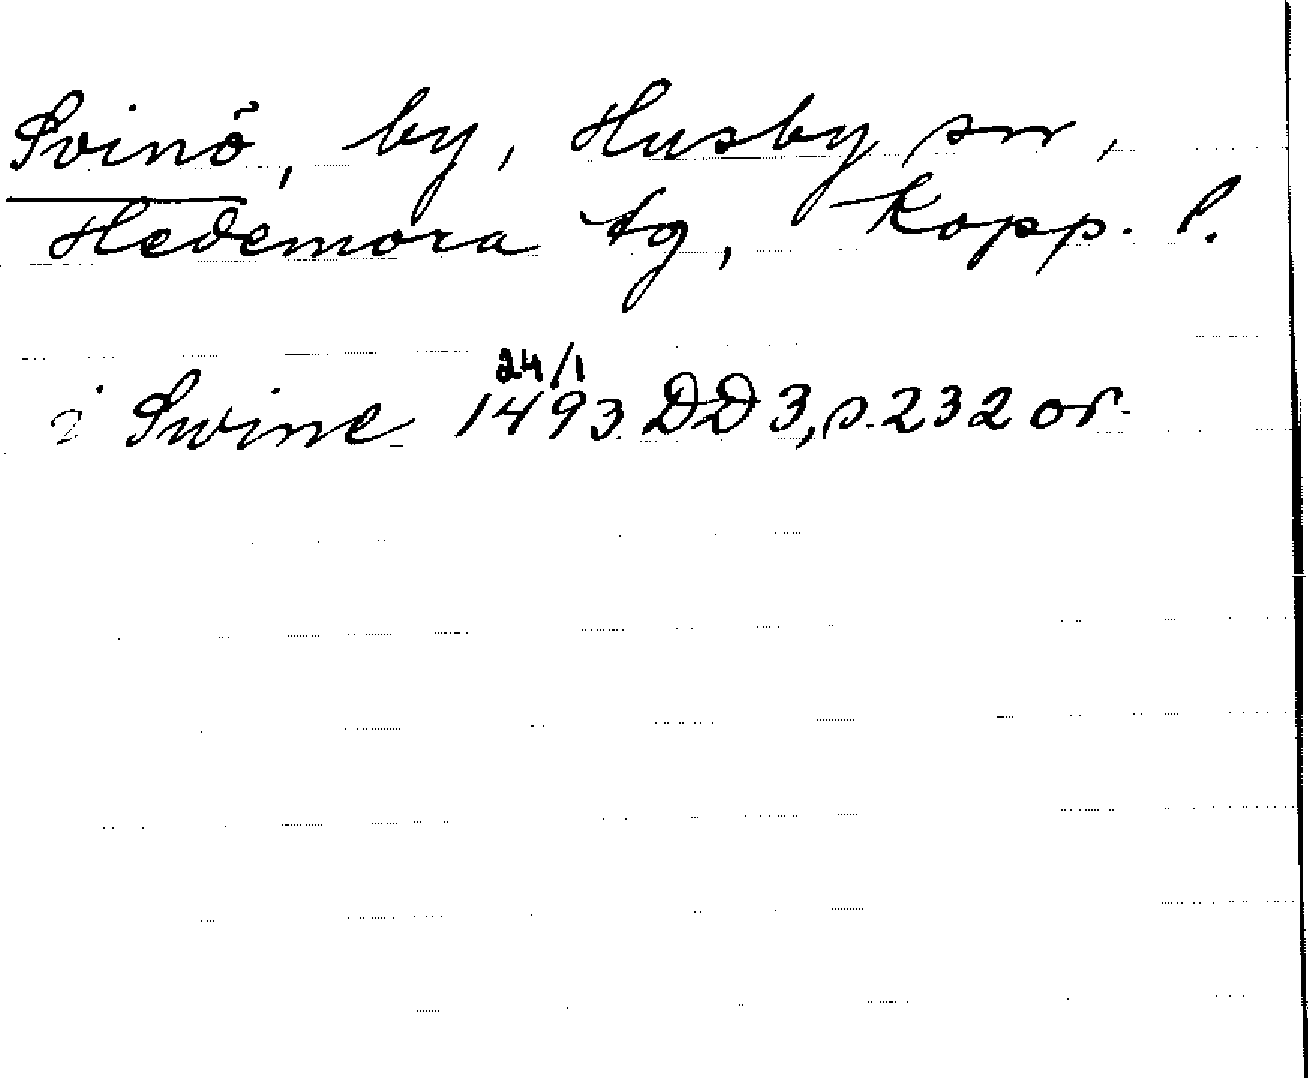 Svinö, by, Husby sn,
Hedemora tg, Kopp. l.
24/1
i Swine 1493 DD 3, s. 232 or.